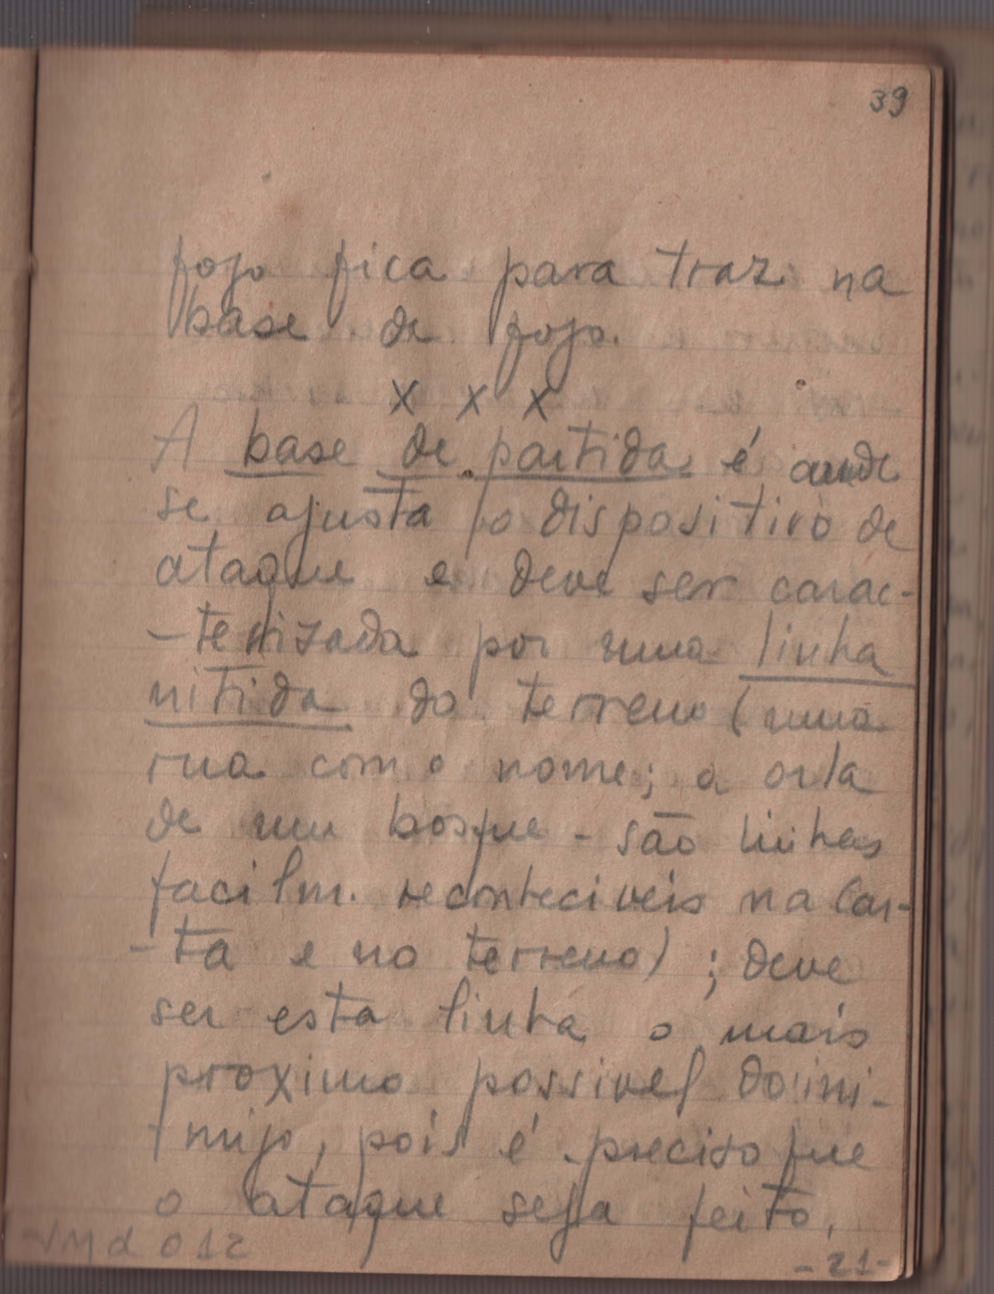 39
fogo fica para traz na
base de fogo.
x x x
A base de partida é onde
se ajusta o dispositivo de
ataque e deve ser carac-
-terizada por uma linha
nitida do terreno (uma
rua com o nome; a orla
de um bosque - são linhas
facilm. reconheciveis na Car-
-ta e no terreno); deve
ser esta linha o mais
proximo possivel do ini-
-migo, pois é preciso que
o ataque seja feito,
- 21 -